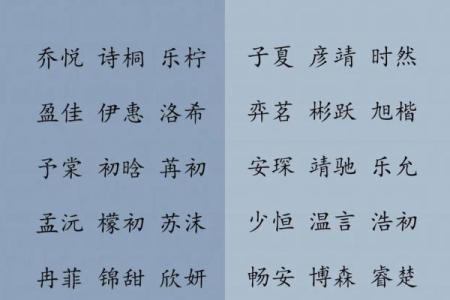 乔悦 诗桐 乐柠
盈佳 伊惠 洛希
予棠 初晗 苒初
孟沅 檬初 苏沫
冉菲 锦甜 欣妍
子夏 彦靖 时然
弈茗 彬跃 旭楷
安琛 靖驰 乐允
少恒 温言 浩初
畅安 博森 睿楚